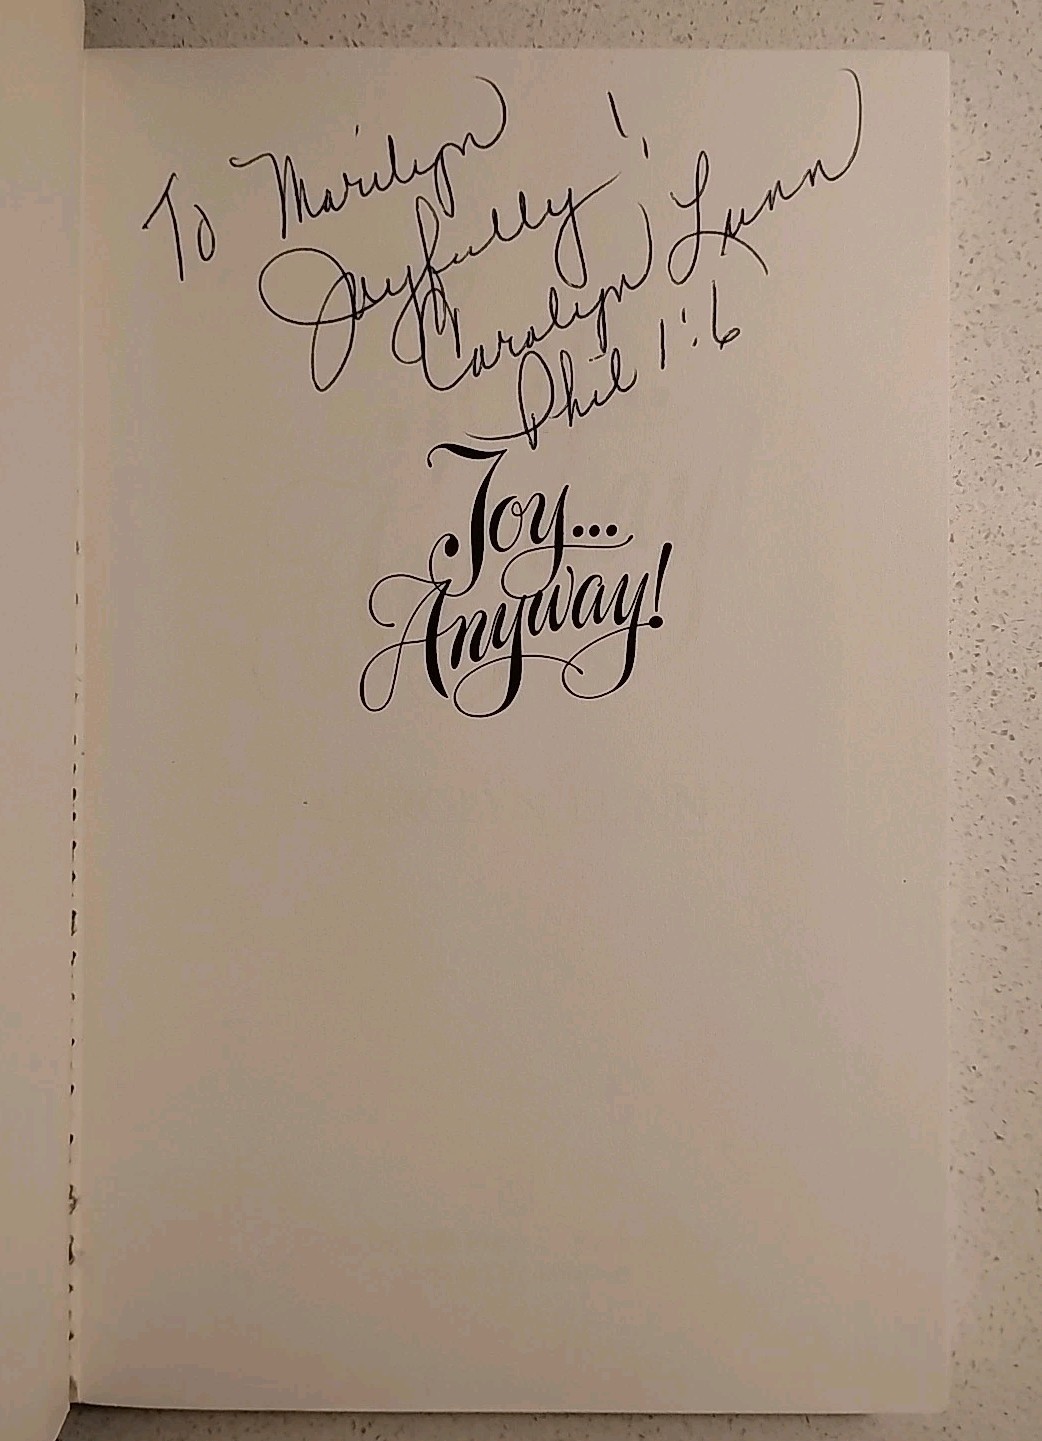 To Marilyn
Joyfully!
Carolyn Lunn
Phil 1:6
Joy...
Anyway!